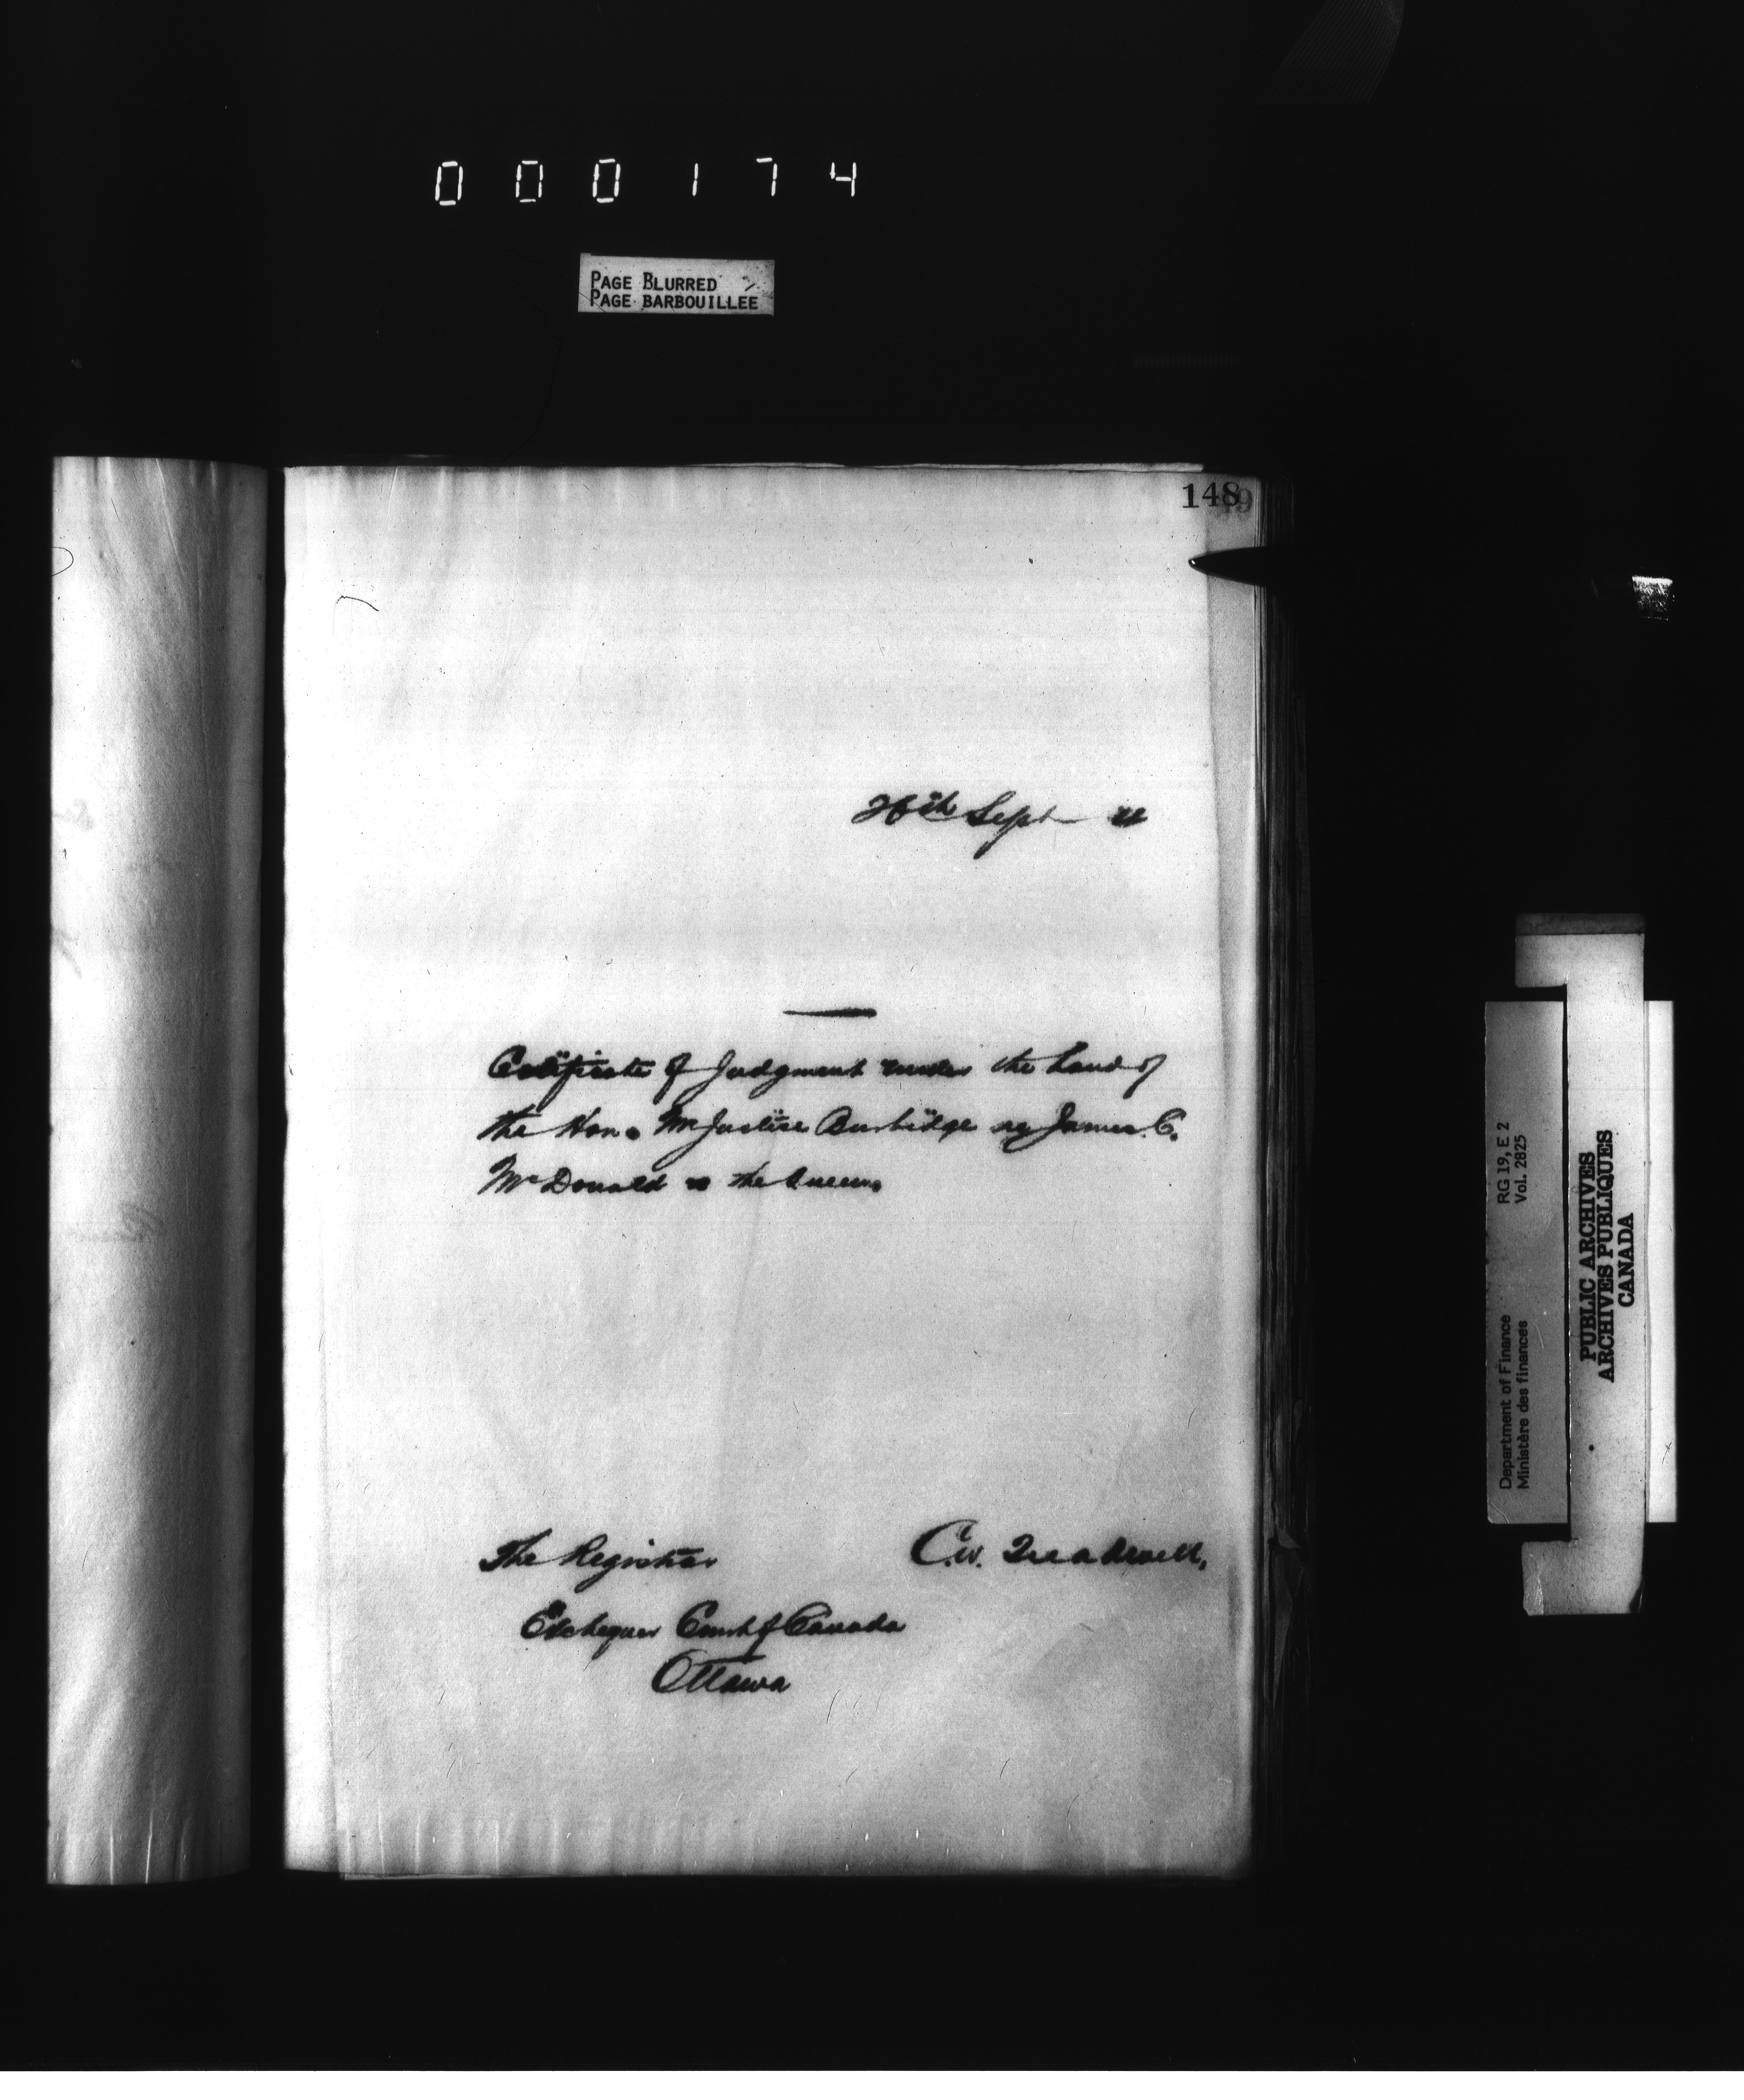 000174
PAGE BLURRED
PAGE BARBOUILLEE
148
26th Sept
Certificate of Judgment under the hand of
the Hon. Mr Justice Burbidge re James C.
McDonald vs the Queen.
The Registrar
C.W. Treadwell,
Exchequer Court of Canada
Ottawa
Department of Finance RG 19, E 2
Ministère des finances Vol. 2825
PUBLIC ARCHIVES
ARCHIVES PUBLIQUES
CANADA